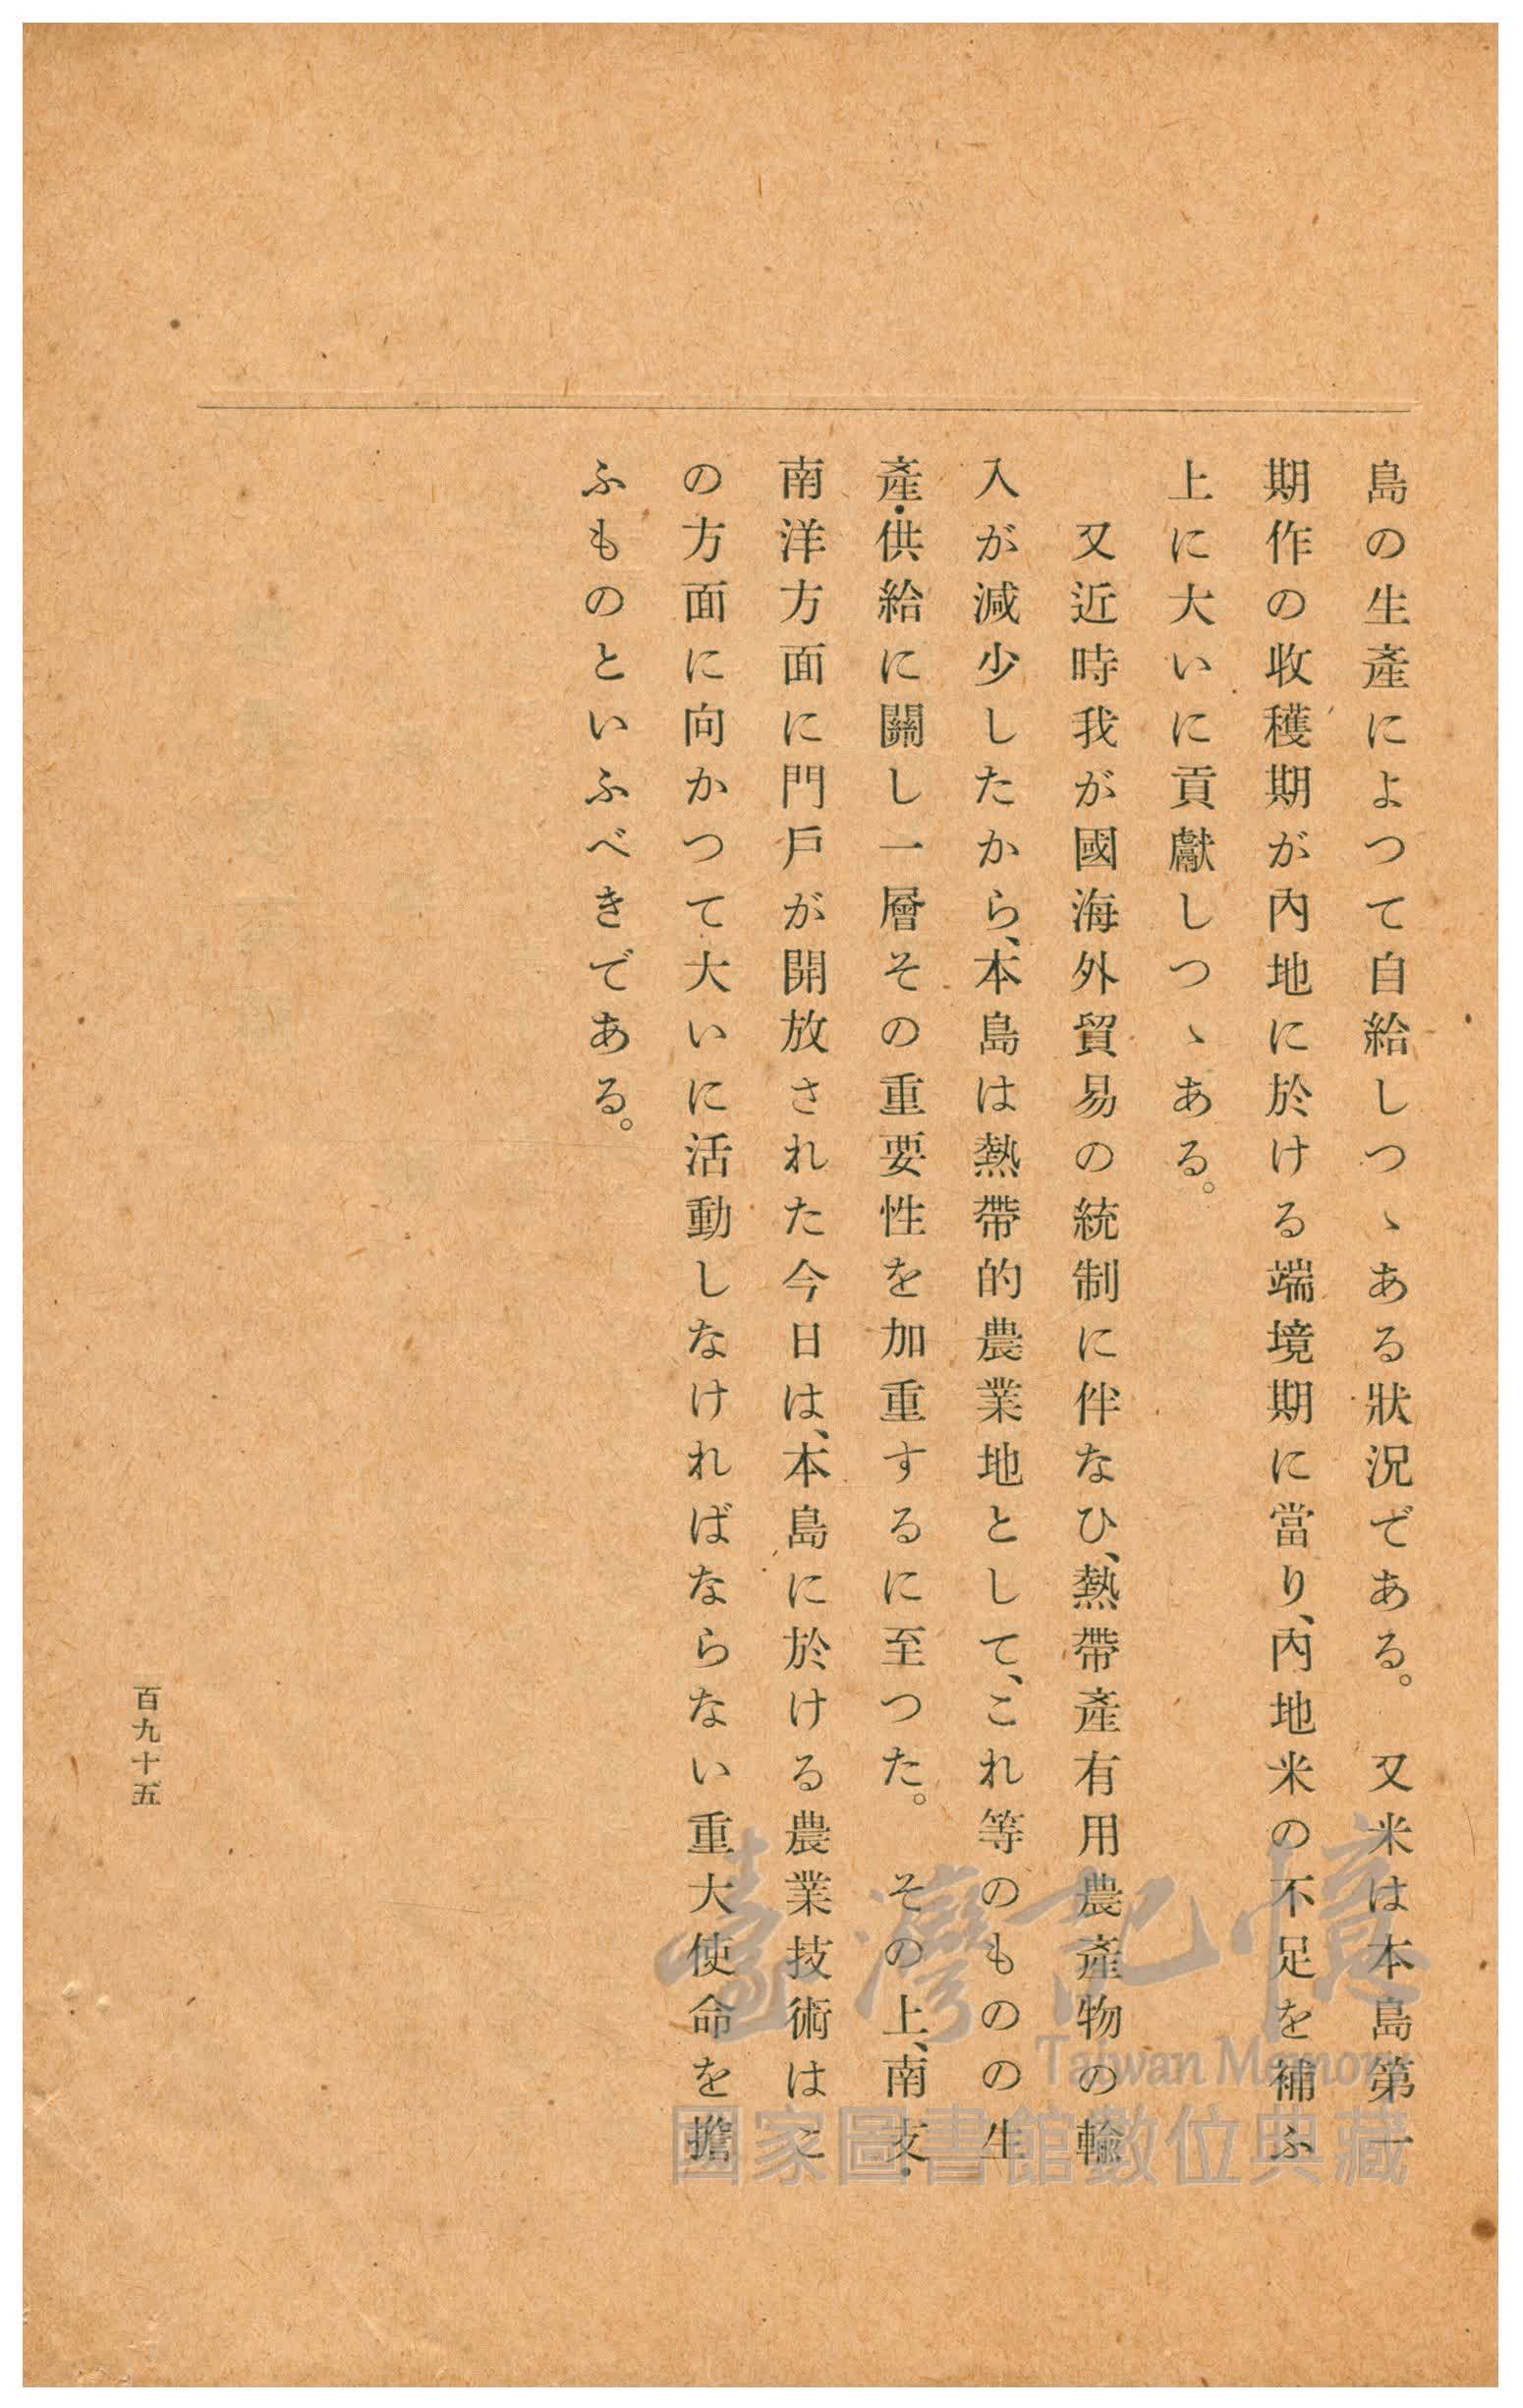 島の生產によつて自給しつゝある狀況である。又米は本島第一
期作の收穫期が內地に於ける端境期に當り、內地米の不足を補ふ
上に大いに貢獻しつゝある。
又近時我が國海外貿易の統制に伴なひ、熱帶產有用農產物の輸
入が減少したから、本島は熱帶的農業地として、これ等のものの生
產・供給に關し一層その重要性を加重するに至つた。その上、南支・
南洋方面に門戶が開放された今日は、本島に於ける農業技術はこ
の方面に向かつて大いに活動しなければならない重大使命を擔
ふものといふべきである。
百九十五
臺灣記憶
Taiwan Memory
國家圖書館數位典藏